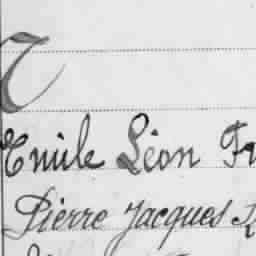 Emile Léon
Pierre Jacques